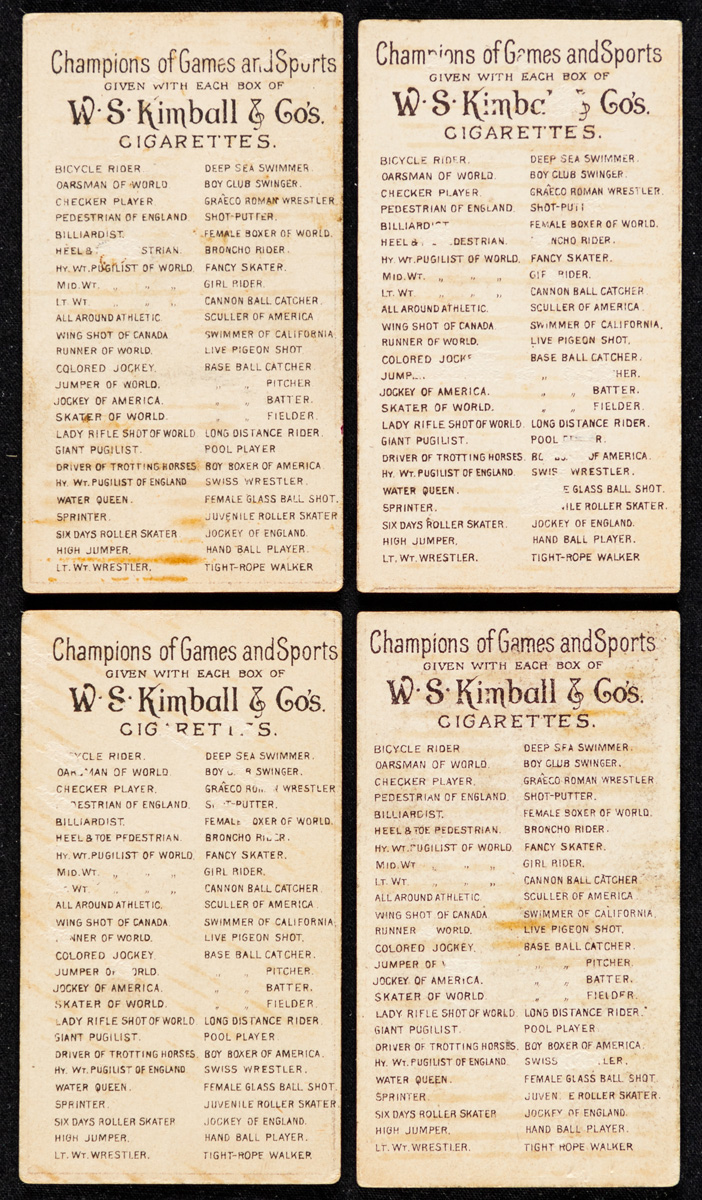 Champions of Games and Sports
GIVEN WITH EACH BOX OF
W·S·Kimball & Co's.
CIGARETTES.
BICYCLE RIDER
OARSMAN OF WORLD
CHECKER PLAYER
PEDESTRIAN OF ENGLAND
BILLIARDIST.
HEEL &
HY. WT. PUGILIST OF WORLD.
MID. WT. „ „ „
LT. WT. „ „ „
ALL AROUND ATHLETIC.
WING SHOT OF CANADA
RUNNER OF WORLD.
COLORED JOCKEY.
JUMPER OF WORLD.
JOCKEY OF AMERICA.
SKATER OF WORLD.
LADY RIFLE SHOT OF WORLD.
GIANT PUGILIST.
DRIVER OF TROTTING HORSES.
HY. WT. PUGILIST OF ENGLAND
WATER QUEEN.
SPRINTER.
SIX DAYS ROLLER SKATER
HIGH JUMPER.
LT. WT. WRESTLER.
DEEP SEA SWIMMER.
BOY CLUB SWINGER.
GRAECO ROMAN WRESTLER.
SHOT-PUTTER.
FEMALE BOXER OF WORLD.
BRONCHO RIDER.
FANCY SKATER.
GIRL RIDER.
CANNON BALL CATCHER.
SCULLER OF AMERICA
SWIMMER OF CALIFORNIA.
LIVE PIGEON SHOT
BASE BALL CATCHER
„ „ PITCHER
„ „ BATTER.
„ „ FIELDER.
LONG DISTANCE RIDER.
POOL PLAYER
BOY BOXER OF AMERICA
SWISS WRESTLER.
FEMALE GLASS BALL SHOT.
JUVENILE ROLLER SKATER
JOCKEY OF ENGLAND.
HAND BALL PLAYER.
TIGHT-ROPE WALKER
Champions of Games and Sports
GIVEN WITH EACH BOX OF
W·S·Kimball & Co's.
CIGARETTES.
BICYCLE RIDER.
OARSMAN OF WORLD.
CHECKER PLAYER
PEDESTRIAN OF ENGLAND.
BILLIARDIST
HEEL & PEDESTRIAN.
HY. WT. PUGILIST OF WORLD.
MID. WT. „ „ „
LT. WT. „ „ „
ALL AROUND ATHLETIC.
WING SHOT OF CANADA
RUNNER OF WORLD.
COLORED JOCKE
JUMP
JOCKEY OF AMERICA.
SKATER OF WORLD.
LADY RIFLE SHOT OF WORLD.
GIANT PUGILIST.
DRIVER OF TROTTING HORSES.
HY. WT. PUGILIST OF ENGLAND.
WATER QUEEN.
SPRINTER.
SIX DAYS ROLLER SKATER.
HIGH JUMPER.
LT. WT. WRESTLER.
DEEP SEA SWIMMER.
BOY CLUB SWINGER.
GRAECO ROMAN WRESTLER.
SHOT-PUTT
FEMALE BOXER OF WORLD.
NCHO RIDER.
FANCY SKATER.
GIRL RIDER.
CANNON BALL CATCHER
SCULLER OF AMERICA
SWIMMER OF CALIFORNIA.
LIVE PIGEON SHOT.
BASE BALL CATCHER.
„ HER.
„ „ BATTER.
„ „ FIELDER.
LONG DISTANCE RIDER.
POOL
OF AMERICA.
SWISS WRESTLER.
E GLASS BALL SHOT.
ILE ROLLER SKATER.
JOCKEY OF ENGLAND.
HAND BALL PLAYER.
TIGHT-ROPE WALKER
Champions of Games and Sports
GIVEN WITH EACH BOX OF
W·S·Kimball & Co's.
CIGARETTES.
BICYCLE RIDER.
OARSMAN OF WORLD.
CHECKER PLAYER.
DESTRIAN OF ENGLAND.
BILLIARDIST.
HEEL & TOE PEDESTRIAN.
HY. WT. PUGILIST OF WORLD.
MID. WT. „ „ „
WT. „ „ „
ALL AROUND ATHLETIC.
WING SHOT OF CANADA
NNER OF WORLD.
COLORED JOCKEY.
JUMPER OF ORLD.
JOCKEY OF AMERICA.
SKATER OF WORLD.
LADY RIFLE SHOT OF WORLD.
GIANT PUGILIST.
DRIVER OF TROTTING HORSES.
HY. WT. PUGILIST OF ENGLAND
WATER QUEEN.
SPRINTER.
SIX DAYS ROLLER SKATER
HIGH JUMPER.
LT. WT. WRESTLER.
DEEP SEA SWIMMER.
BOY SWINGER.
GRAECO ROMAN WRESTLER
SHOT-PUTTER.
FEMALE BOXER OF WORLD.
BRONCHO RIDER.
FANCY SKATER.
GIRL RIDER.
CANNON BALL CATCHER
SCULLER OF AMERICA.
SWIMMER OF CALIFORNIA.
LIVE PIGEON SHOT.
BASE BALL CATCHER.
„ „ PITCHER.
„ „ BATTER.
„ „ FIELDER.
LONG DISTANCE RIDER.
POOL PLAYER
BOY BOXER OF AMERICA.
SWISS WRESTLER.
FEMALE GLASS BALL SHOT.
JUVENILE ROLLER SKATER.
JOCKEY OF ENGLAND.
HAND BALL PLAYER.
TIGHT-ROPE WALKER
Champions of Games and Sports
GIVEN WITH EACH BOX OF
W·S·Kimball & Co's.
CIGARETTES.
BICYCLE RIDER
OARSMAN OF WORLD.
CHECKER PLAYER.
PEDESTRIAN OF ENGLAND.
BILLIARDIST.
HEEL & TOE PEDESTRIAN.
HY. WT. PUGILIST OF WORLD
MID. WT. „ „ „
LT. WT. „ „ „
ALL AROUND ATHLETIC
WING SHOT OF CANADA
RUNNER WORLD.
COLORED JOCKEY.
JUMPER OF
JOCKEY OF AMERICA.
SKATER OF WORLD.
LADY RIFLE SHOT OF WORLD.
GIANT PUGILIST.
DRIVER OF TROTTING HORSES.
HY. WT. PUGILIST OF ENGLAND.
WATER QUEEN.
SPRINTER
SIX DAYS ROLLER SKATER
HIGH JUMPER.
LT. WT. WRESTLER.
DEEP SEA SWIMMER.
BOY CLUB SWINGER.
GRAECO ROMAN WRESTLER
SHOT-PUTTER.
FEMALE BOXER OF WORLD.
BRONCHO RIDER.
FANCY SKATER.
GIRL RIDER.
CANNON BALL CATCHER
SCULLER OF AMERICA
SWIMMER OF CALIFORNIA.
LIVE PIGEON SHOT.
BASE BALL CATCHER.
„ „ PITCHER.
„ „ BATTER.
„ „ FIELDER.
LONG DISTANCE RIDER.
POOL PLAYER
BOY BOXER OF AMERICA.
SWISS LER.
FEMALE GLASS BALL SHOT
JUVENILE ROLLER SKATER.
JOCKEY OF ENGLAND.
HAND BALL PLAYER.
TIGHT ROPE WALKER